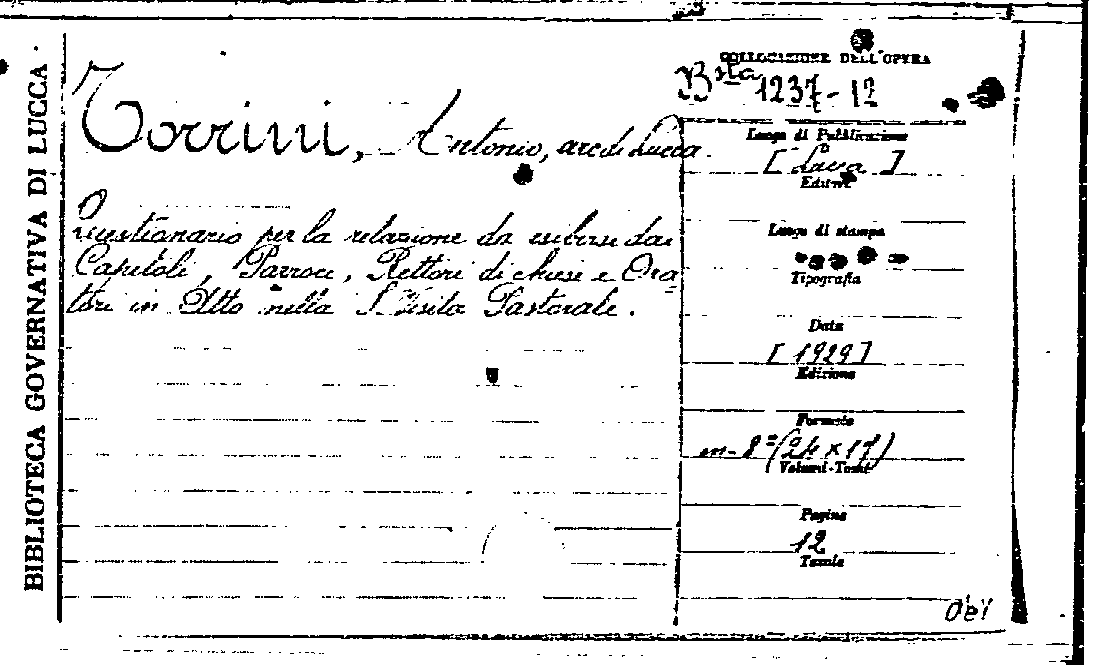 BIBLIOTECA GOVERNATIVA DI LUCCA
COLLOCAZIONE DELL'OPERA
Bsta 1237-12
Torrini, Antonio, arc. di Lucca.
Questionario per la relazione da esibirsi dai
Capitoli, Parroci, Rettori di chiese e Ora-
tori in Atto nella S. Visita Pastorale.
Luogo di Pubblicazione
[Lucca]
Editore
Luogo di stampa
Tipografia
Data
[1929]
Edizione
Formato
in-8° (24 x 17)
Volumi-Tomi
Pagine
12
Tavole